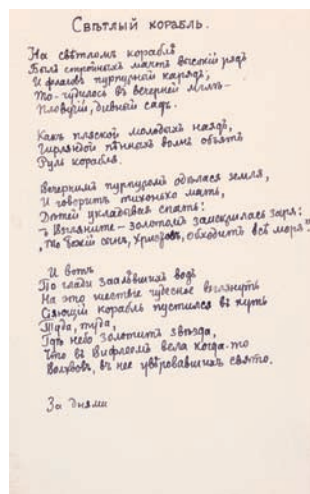 Свѣтлый корабль.
На свѣтломъ кораблѣ
Былъ стройныхъ мачтъ высокій рядъ
И флаговъ пурпурный нарядъ;
То-чудилось въ вечерней мглѣ-
Пловучій, дивный садъ.
Какъ пляской молодыхъ наядъ,
Гирляндой пѣнныхъ волнъ объятъ
Руль корабля.
Вечернимъ пурпуромъ одѣлася земля,
И говоритъ тихонько мать,
Дѣтей укладывая спать:
"Взгляните - золотомъ заискрилась заря:
"То Божій сынъ, Христосъ, обходитъ всѣ моря!"
И вотъ
По глади заалѣвшихъ водъ
На это шествіе чудесное взглянуть
Сіяющій корабль пустился въ путь
Туда, туда,
Гдѣ небо золотитъ звѣзда,
Что въ Вифлеемъ вела когда-то
Волхвовъ, въ нее увѣровавшихъ свято.
За днями